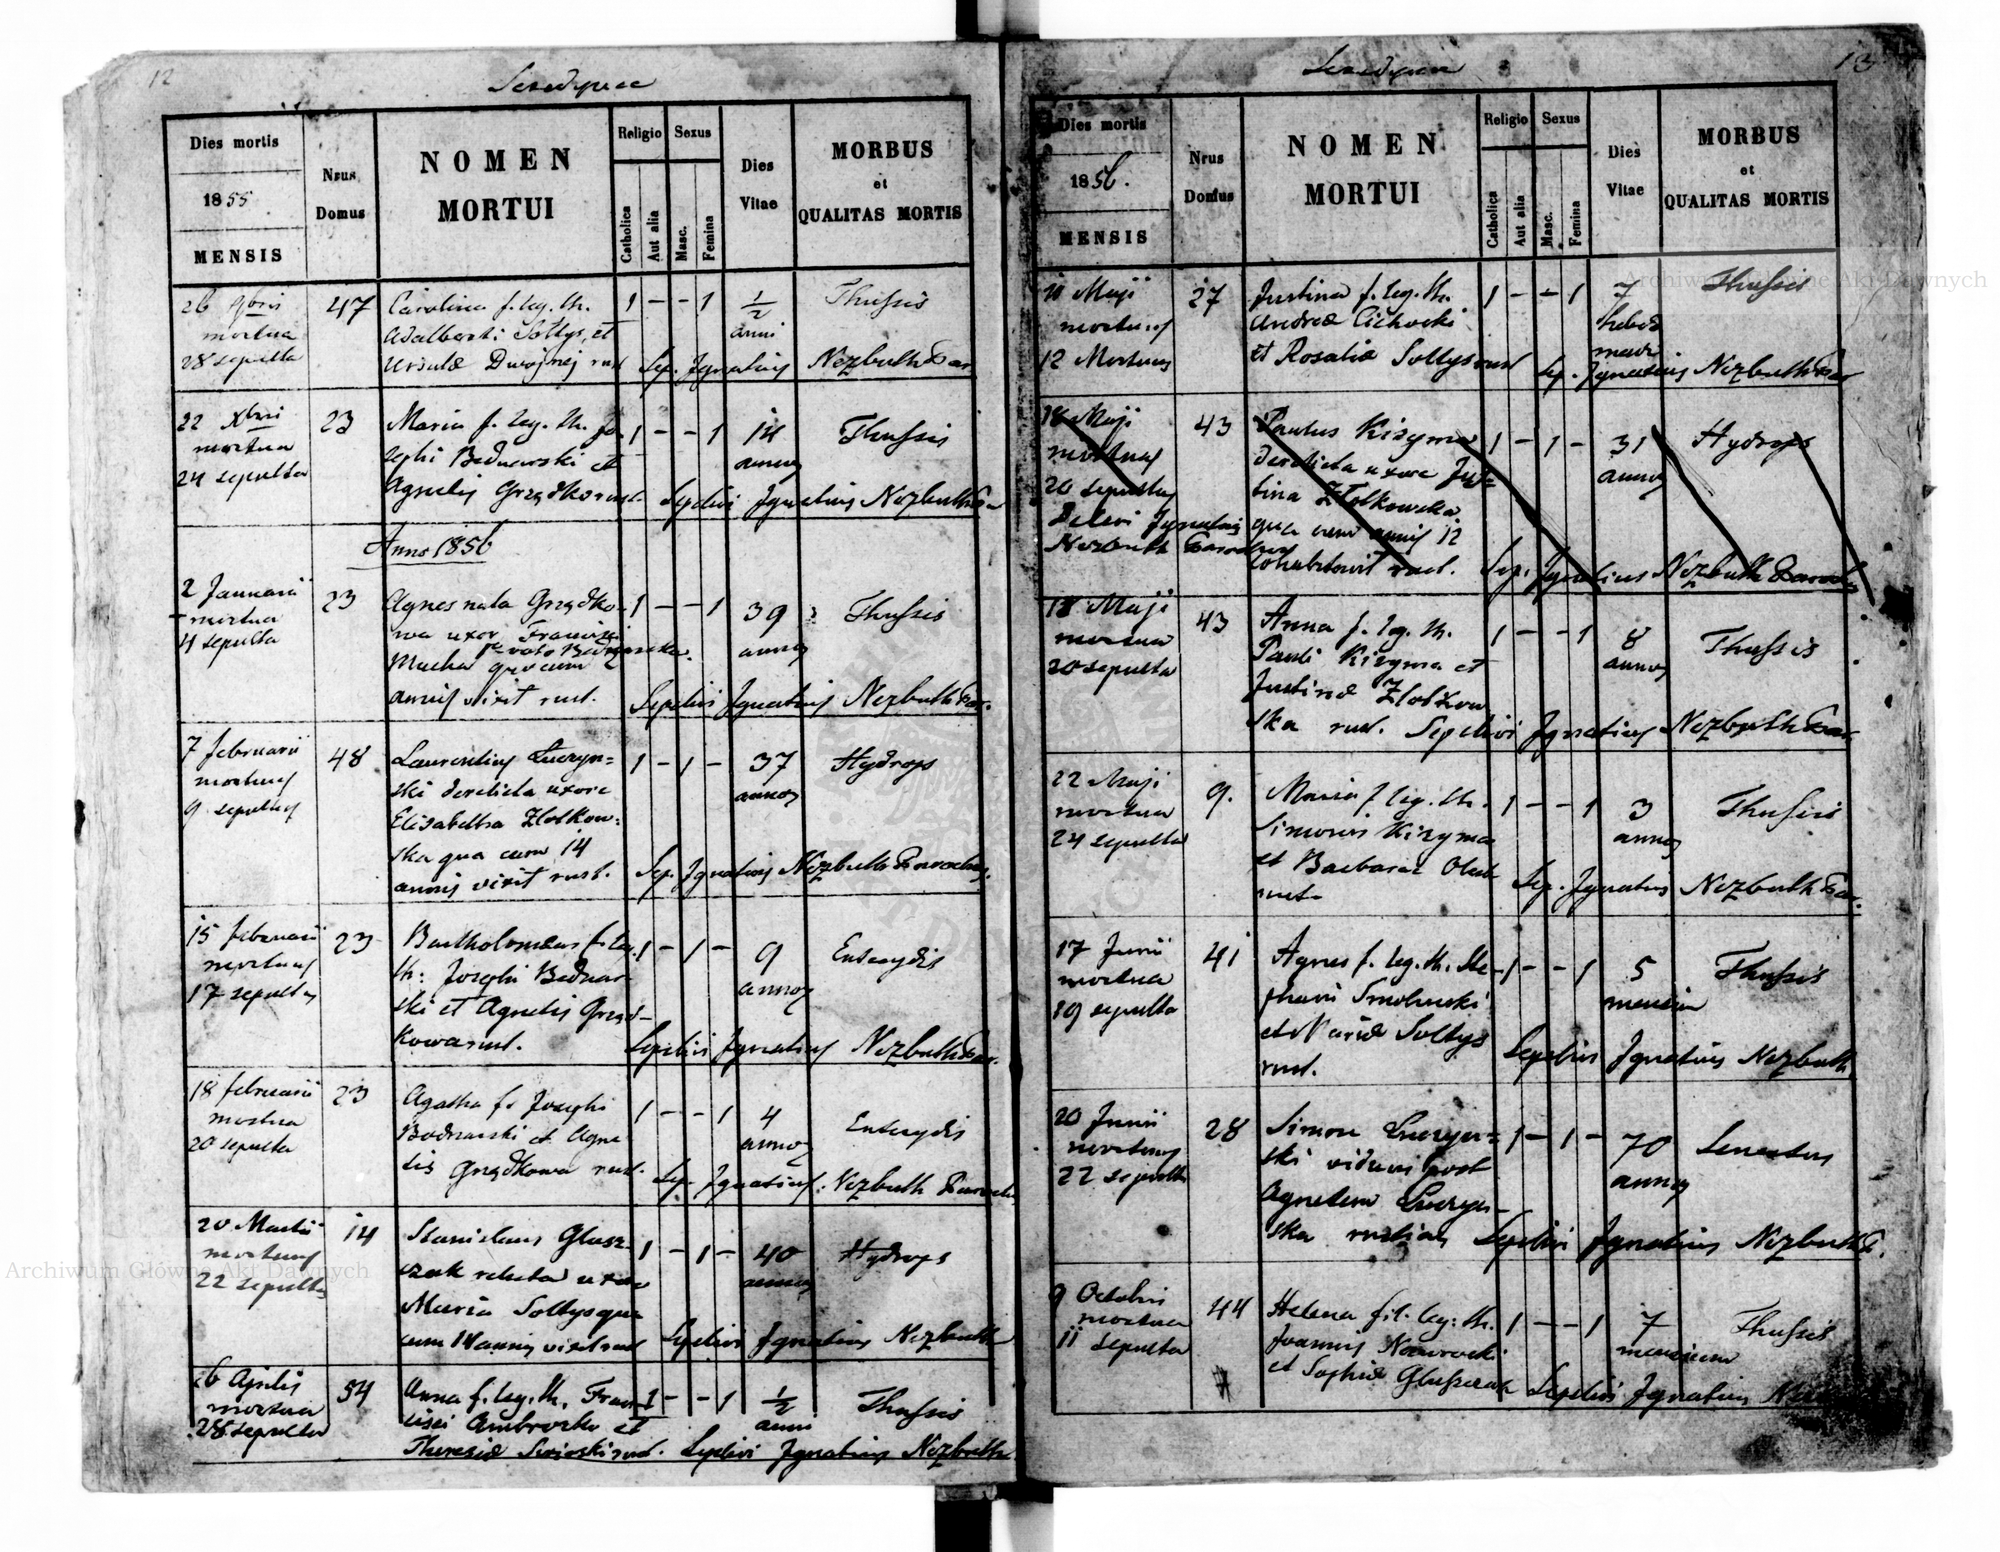 12
Dies mortis
1855
MENSIS
Nrus
Domus
NOMEN
MORTUI
Religio
Catholica
Aut alia
Sexus
Masc.
Femina
Dies
Vitae
MORBUS
et
QUALITAS MORTIS
26 9bris
mortua
28 sepulta
47
Carolina f. leg. th.
Adalberti Soltys, et
Ursulæ Dwojnej rust
1 - - 1
1/2
anni
Thussis
Sep. Ignatius Nezbuth Par
22 Xbris
mortua
24 sepulta
23
Maria f. leg. th. Jo-
sephi Bednarski et
Agnetis Grządko rust.
1 - - 1
14
annos
Thussis
Sepelivi Ignatius Nezbuth
Anno 1856
2 Januarii
mortua
4 sepulta
23
Agnes nata Grządko-
wa uxor Francisci
1o voto Bednarska.
Mucha quocum 2
annis vixit rust.
1 - - 1
39
annos
Thussis
Sepelivi Ignatius Nezbuth Par.
7 februarii
mortuus
9 sepultus
48
Laurentius
ski derelicta uxore
Elisabetha Zlotkow=
ska qua cum 14
annis vixit rust.
1 - 1 -
37
annos
Hydrops
Sep. Ignatius Nezbuth Parochus.
15 februarii
mortuus
17 sepultus
23
Bartholomæus f. leg.
th: Josephi Bednar
ski et Agnetis Grząd-
kowa rust.
1 - 1 -
9
annos
Sepelivi Ignatius Nezbuth Par.
18 februarii
mortua
20 sepulta
23
Agatha f. Josephi
Bednarski et Agne
tis Grządkowa rust.
1 - - 1
4
annos
Sep. Ignatius Nezbuth Paroch
20 Martii
mortuus
22 sepultus
14
Stanislaus Glusz-
czak relicta uxore
Maria Soltys qua
cum 14 annis vixit rust
1 - 1 -
40
annos
Hydrops
Sepelivi Ignatius Nezbuth
26 Aprilis
mortua
28 sepulta
54
Anna f. leg. th. Fran-
cisci et
Theresiæ rust.
1 - - 1
1/2
anni
Thussis
Sepelivi Ignatius Nezbuth
13
Dies mortis
1856.
MENSIS
Nrus
Domus
NOMEN
MORTUI
Religio
Catholica
Aut alia
Sexus
Masc.
Femina
Dies
Vitae
MORBUS
et
QUALITAS MORTIS
Maji
mortuus
12
27
Justina f. leg. th.
Andreæ Cichocki
et Rosaliæ Soltys rust
1 - - 1
7
Thussis
Sep. Ignatius Nezbuth Par
18 Maji
mortuus
20 sepultus
Delevi Ignatius
Nezbuth Parochus
43
Paulus Kizyma
derelicta uxore Jus=
tina Złotkowska
qua cum annis 12
cohabitavit rust.
1 - 1 -
31
annos
Hydrops
Sep. Ignatius Nezbuth Parochus
18 Maji
mortua
20 sepulta
43
Anna f. leg. th.
Pauli Kizyma et
Justinæ Zlotkow
ska rust. Sepelivi Ignatius Nezbuth Par.
1 - - 1
8
annos
Thussis
22 Maji
mortua
24 sepulta
9.
Maria f leg. th.
Simonis Kizyma
et Barbaræ
rust.
1 - - 1
3
annos
Thussis
Sep. Ignatius Nezbuth Par.
17 Junii
mortua
19 sepulta
41
Agnes f. leg. th. Ste-
phani Smolinski
et Mariæ Soltys
rust.
1 - - 1
5
mensium
Thussis
Sepelivi Ignatius Nezbuth
20 Junii
mortuus
22 sepultus
28
Simon
ski viduus post
Agnetem
ska rusticus
1 - 1 -
70
annos
Senectus
Sepelivi Ignatius Nezbuth P.
9 Octobris
mortua
11 sepulta
44
Helena fil. leg: th.
Joannis Nawrocki
et Sophiæ Gluszczak
1 - - 1
7
mensium
Thussis
Sepelivi Ignatius
Archiwum Główne Akt Dawnych
Archiwum Główne Akt Dawnych